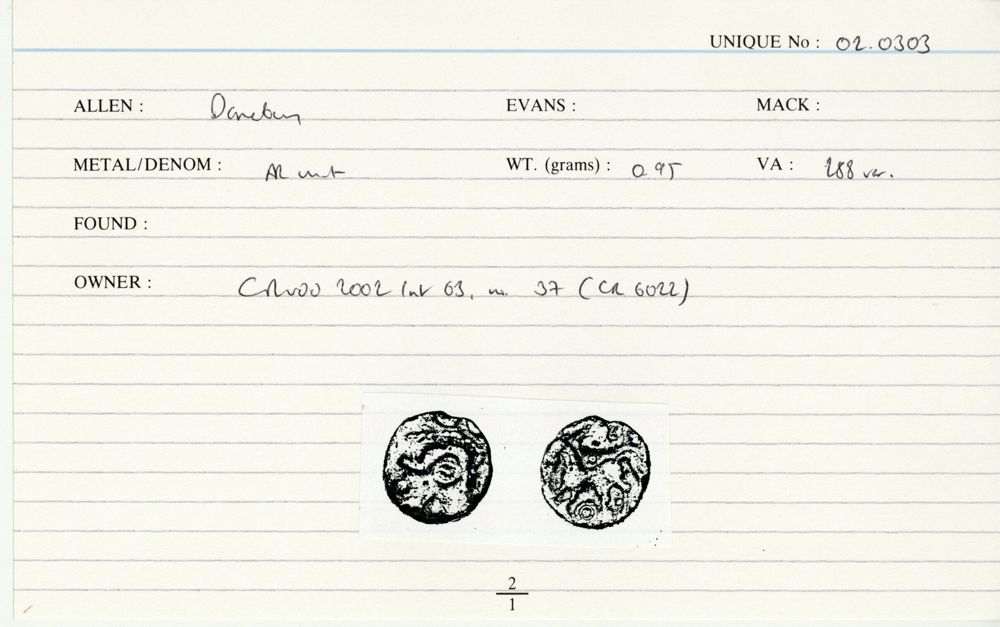 UNIQUE No : 02.0303
ALLEN : Danebury EVANS : MACK :
METAL/DENOM : AR unit WT. (grams) : 0.95 VA : 288 var.
FOUND :
OWNER : 2002 63, no. 37 (CR 6022)
2
1